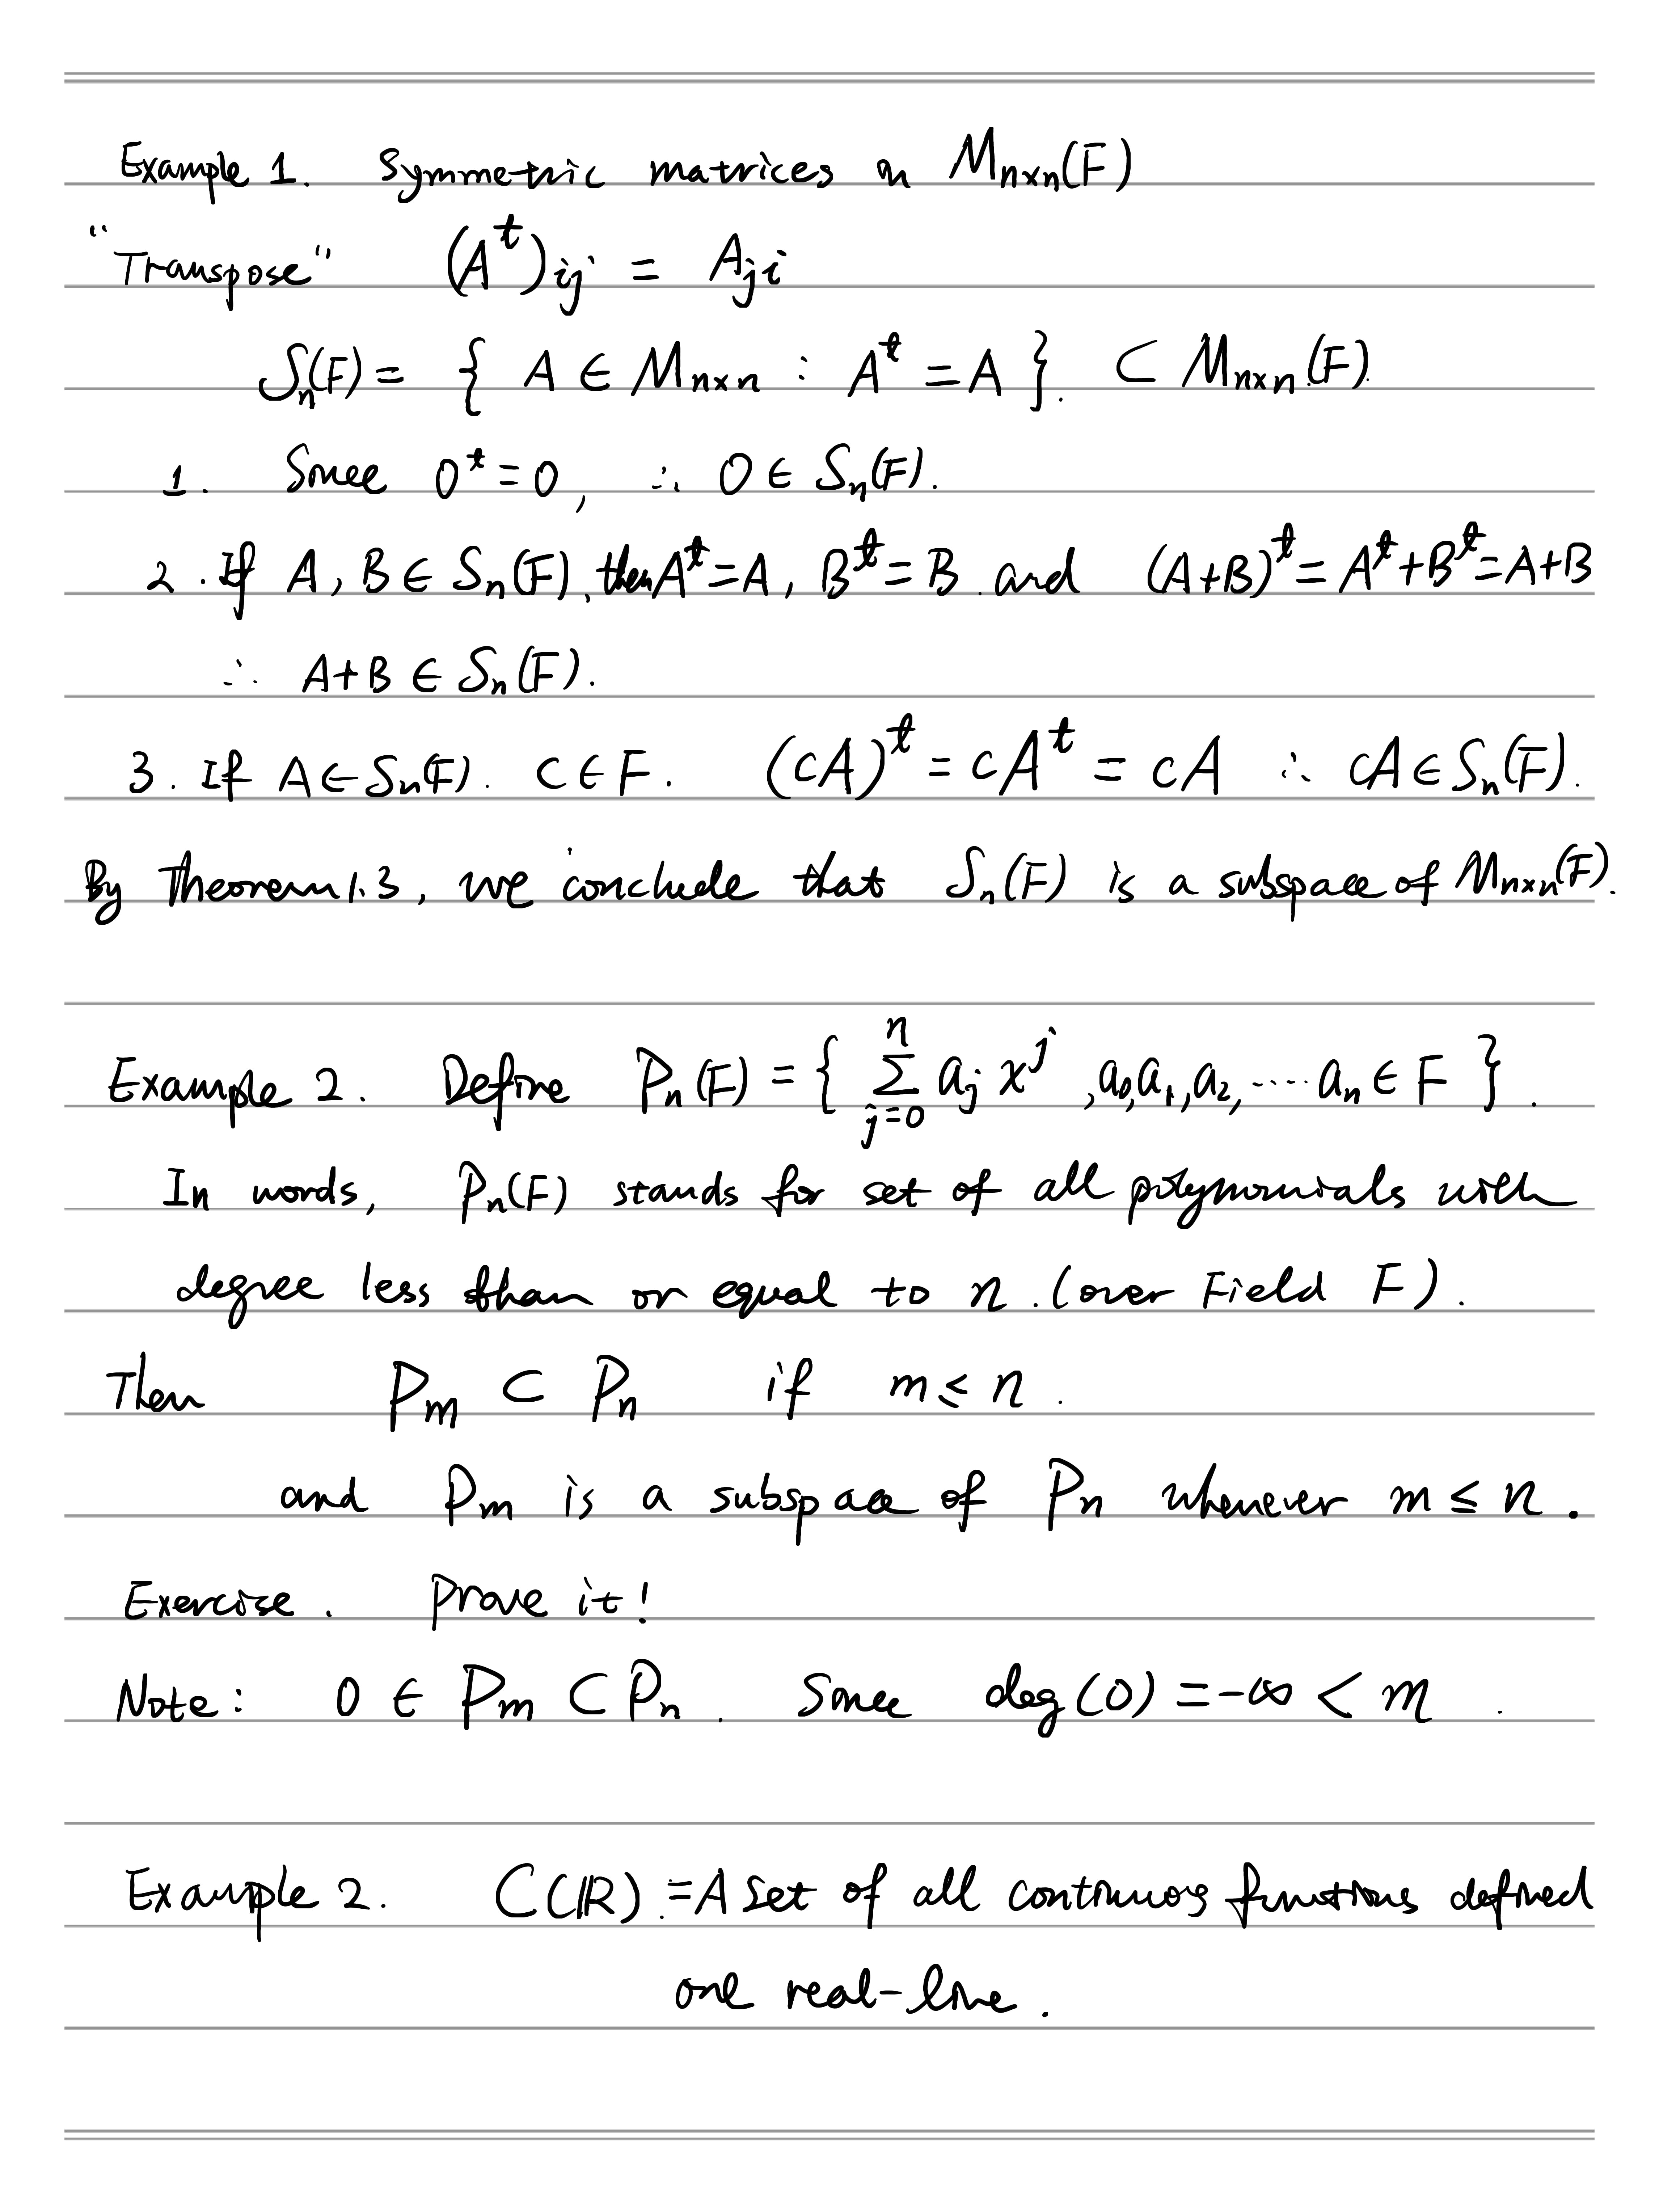 Example 1. Symmetric matrices on Mₙₓₙ(F)
"Transpose" (Aᵗ)ᵢⱼ = Aⱼᵢ
Sₙ(F) = { A ∈ Mₙₓₙ : Aᵗ = A }. ⊂ Mₙₓₙ(F).
1. Since 0ᵗ = 0, ∴ 0 ∈ Sₙ(F).
2. If A, B ∈ Sₙ(F), then Aᵗ = A, Bᵗ = B. and (A+B)ᵗ = Aᵗ + Bᵗ = A+B
∴ A+B ∈ Sₙ(F).
3. If A ∈ Sₙ(F). C ∈ F. (cA)ᵗ = cAᵗ = cA ∴ cA ∈ Sₙ(F).
By Theorem 1.3, we conclude that Sₙ(F) is a subspace of Mₙₓₙ(F).
Example 2. Define Pₙ(F) = { ∑ⱼ₌₀ⁿ aⱼ xʲ , a₀, a₁, a₂, ···· aₙ ∈ F }.
In words, Pₙ(F) stands for set of all polynomials with
degree less than or equal to n. (over Field F).
Then Pₘ ⊂ Pₙ if m ≤ n.
and Pₘ is a subspace of Pₙ whenever m ≤ n.
Exercise. Prove it!
Note: 0 ∈ Pₘ ⊂ Pₙ. Since deg(0) = -∞ < m.
Example 2. C(ℝ) = A set of all continuous functions defined
one real-line.